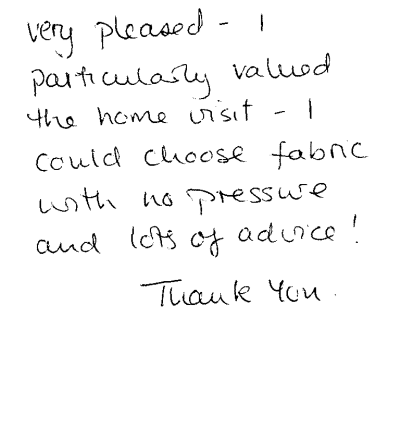 very pleased - I
particularly valued
the home visit - I
could choose fabric
with no pressure
and lots of advice!
Thank You.